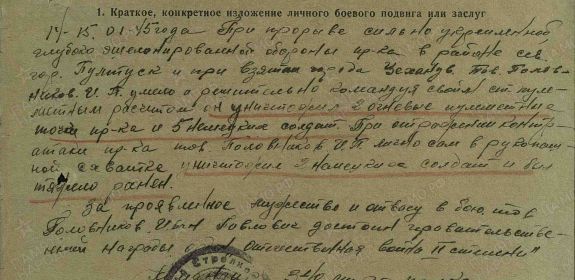 1. Краткое, конкретное изложение личного боевого подвига или заслуг
14-15.01.45 года При прорыве сильно укрепленной
глубоко эшелонированной обороны пр-ка в районе сев.
гор. Пултуск и при взятии города Цеханув тов. Полов-
ников. И. П. умело и решительно командуя своим ст. пуле-
метным расчетом он уничтожил 2 огневые пулеметные
точки пр-ка и 5 немецких солдат. При отражении контр-
атаки пр-ка тов. Половников И П лично сам в рукопаш-
ной схватке уничтожил 2 немецких солдат и был
тяжело ранен.
За проявленное мужество и отвагу в бою, тов
Половников. Иван Павлович достоин правительстве-
нной награды орден отечественная война II степени"